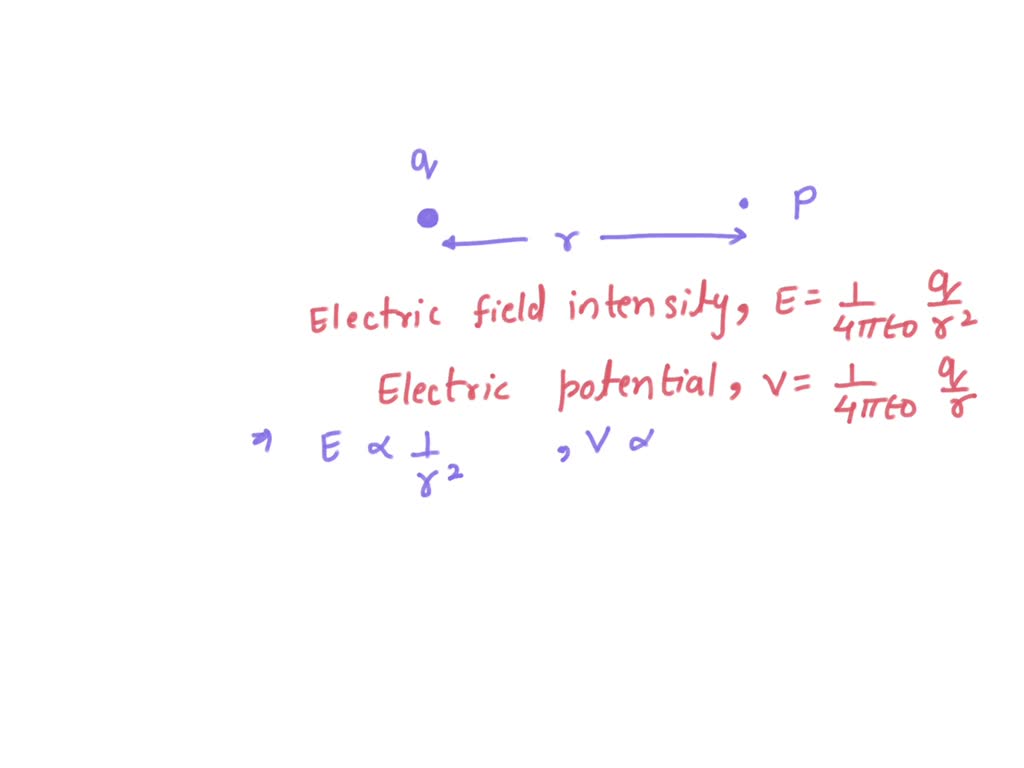 q
P
r
Electric field intensity, E = 1/4π∈0 q/r²
Electric potential, V = 1/4π∈0 q/r
⇒ E ∝ 1/r² , V ∝